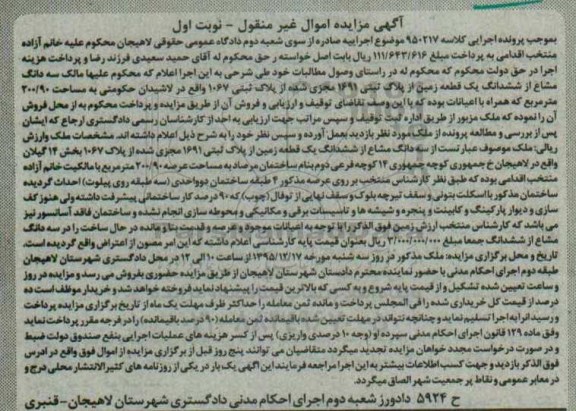 آگهی مزایده اموال غیر منقول - نوبت اول
بموجب پرونده اجرایی کلاسه ۹۵۰۲۱۷ موضوع اجراییه صادره از سوی شعبه دوم دادگاه عمومی حقوقی لاهیجان محکوم علیه خانم آزاده
منتخب اقدامی به پرداخت مبلغ ۱۱۱/۶۴۳/۶۱۶ ریال بابت اصل خواسته در حق محکوم له آقای حمید سعیدی فرزند رضا و پرداخت هزینه
اجرا در حق دولت محکوم که محکوم له در راستای وصول مطالبات خود طی شرحی به این اجرا اعلام که محکوم علیها مالک سه دانگ
مشاع از ششدانگ یک قطعه زمین از پلاک ثبتی ۱۶۹۱ مجزی شده از پلاک ثبتی ۱۰۶۷ واقع در لاشیدان حکومتی به مساحت ۲۰۰/۹۰
مترمربع که همراه با اعیانات بوده که با این وصف تقاضای توقیف و ارزیابی و فروش آن از طریق مزایده و پرداخت محکوم به از محل فروش
آن را نموده که ملک مزبور از طریق اداره ثبت توقیف و سپس مراتب جهت ارزیابی به احد از کارشناسان رسمی دادگستری ارجاع که ایشان
پس از بررسی و مطالعه پرونده از ملک مورد نظر بازدید بعمل آورده و سپس نظر خود را به شرح ذیل اعلام داشته اند. مشخصات ملک وارزش
ریالی: ملک موصوف عبارتست از سه دانگ مشاع از ششدانگ یک قطعه زمین از پلاک ثبتی ۱۶۹۱ مجزی شده از پلاک ۱۰۶۷ بخش ۱۴ گیلان
واقع در لاهیجان خ جمهوری کوچه جمهوری ۱۴ کوچه فرعی دوم بنام ساختمان مرصاد به مساحت عرصه ۲۰۰/۹۰ مترمربع با مالکیت خانم آزاده
منتخب اقدامی بوده که طبق نظر کارشناس منتخب بر روی عرصه مذکور ۴ طبقه ساختمان دوواحدی (سه طبقه روی پیلوت) احداث گردیده
ساختمان مذکور با اسکلت بتونی و سقف تیرچه بلوک و سقف نهایی از توفال (چوب) که ۹۰ درصد کار ساختمانی پیشرفت داشته ولی هنوز کف
سازی و دیوار پارکینگ و کابینت و پنجره و شیشه ها و تاسیسات برقی و مکانیکی و محوطه سازی انجام نشده و ساختمان فاقد آسانسور نیز
می باشد که کارشناس منتخب ارزش زمین فوق الذکر را با توجه به اعیانات موجود و عرصه و قدمت بنا و مانده در حال ساخت را در سه دانگ
مشاع از ششدانگ جمعا مبلغ ۳/۰۰۰/۰۰۰/۰۰۰ ریال بعنوان قیمت پایه کارشناسی اعلام داشته که این امر مصون از اعتراض واقع گردیده است.
تاریخ و محل برگزاری مزایده: ملک مذکور در روز سه شنبه مورخه ۱۳۹۵/۱۲/۱۷ از ساعت ۱۰ الی ۱۲ در محل دادگستری شهرستان لاهیجان
طبقه دوم اجرای احکام مدنی با حضور نماینده محترم دادستان شهرستان لاهیجان از طریق مزایده حضوری بفروش می رسد و مزایده در روز
و ساعت تعیین شده تشکیل و از قیمت پایه شروع و به کسی که بالاترین قیمت را پیشنهاد نماید فروخته خواهد شد و خریدار موظف است ده
درصد از قیمت کل خریداری شده را فی المجلس پرداخت و مانده ثمن معامله را حداکثر ظرف مهلت یک ماه از تاریخ برگزاری مزایده پرداخت
و رسید آنرا به اجرا تسلیم نماید و چنانچه نتواند در مهلت تعیین شده باقیمانده ثمن معامله (۹۰ درصد باقیمانده) را در فرجه مقرر پرداخت نماید
وفق ماده ۱۲۹ قانون اجرای احکام مدنی سپرده او (وجه ۱۰ درصدی واریزی) پس از کسر هزینه های عملیات اجرایی بنفع صندوق دولت ضبط
و در صورت درخواست مجدد خواهان مزایده تجدید میگردد متقاضیان می توانند پنج روز قبل از برگزاری مزایده از اموال فوق واقع در آدرس
فوق الذکر بازدید و جهت کسب اطلاعات بیشتر به این اجرا مراجعه فرمایند این آگهی یک بار در یکی از روزنامه های کثیرالانتشار محلی درج و
در معابر عمومی و نقاط پر جمعیت شهر الصاق میگردد.
ح ۵۹۲۴ دادورز شعبه دوم اجرای احکام مدنی دادگستری شهرستان لاهیجان - قنبری